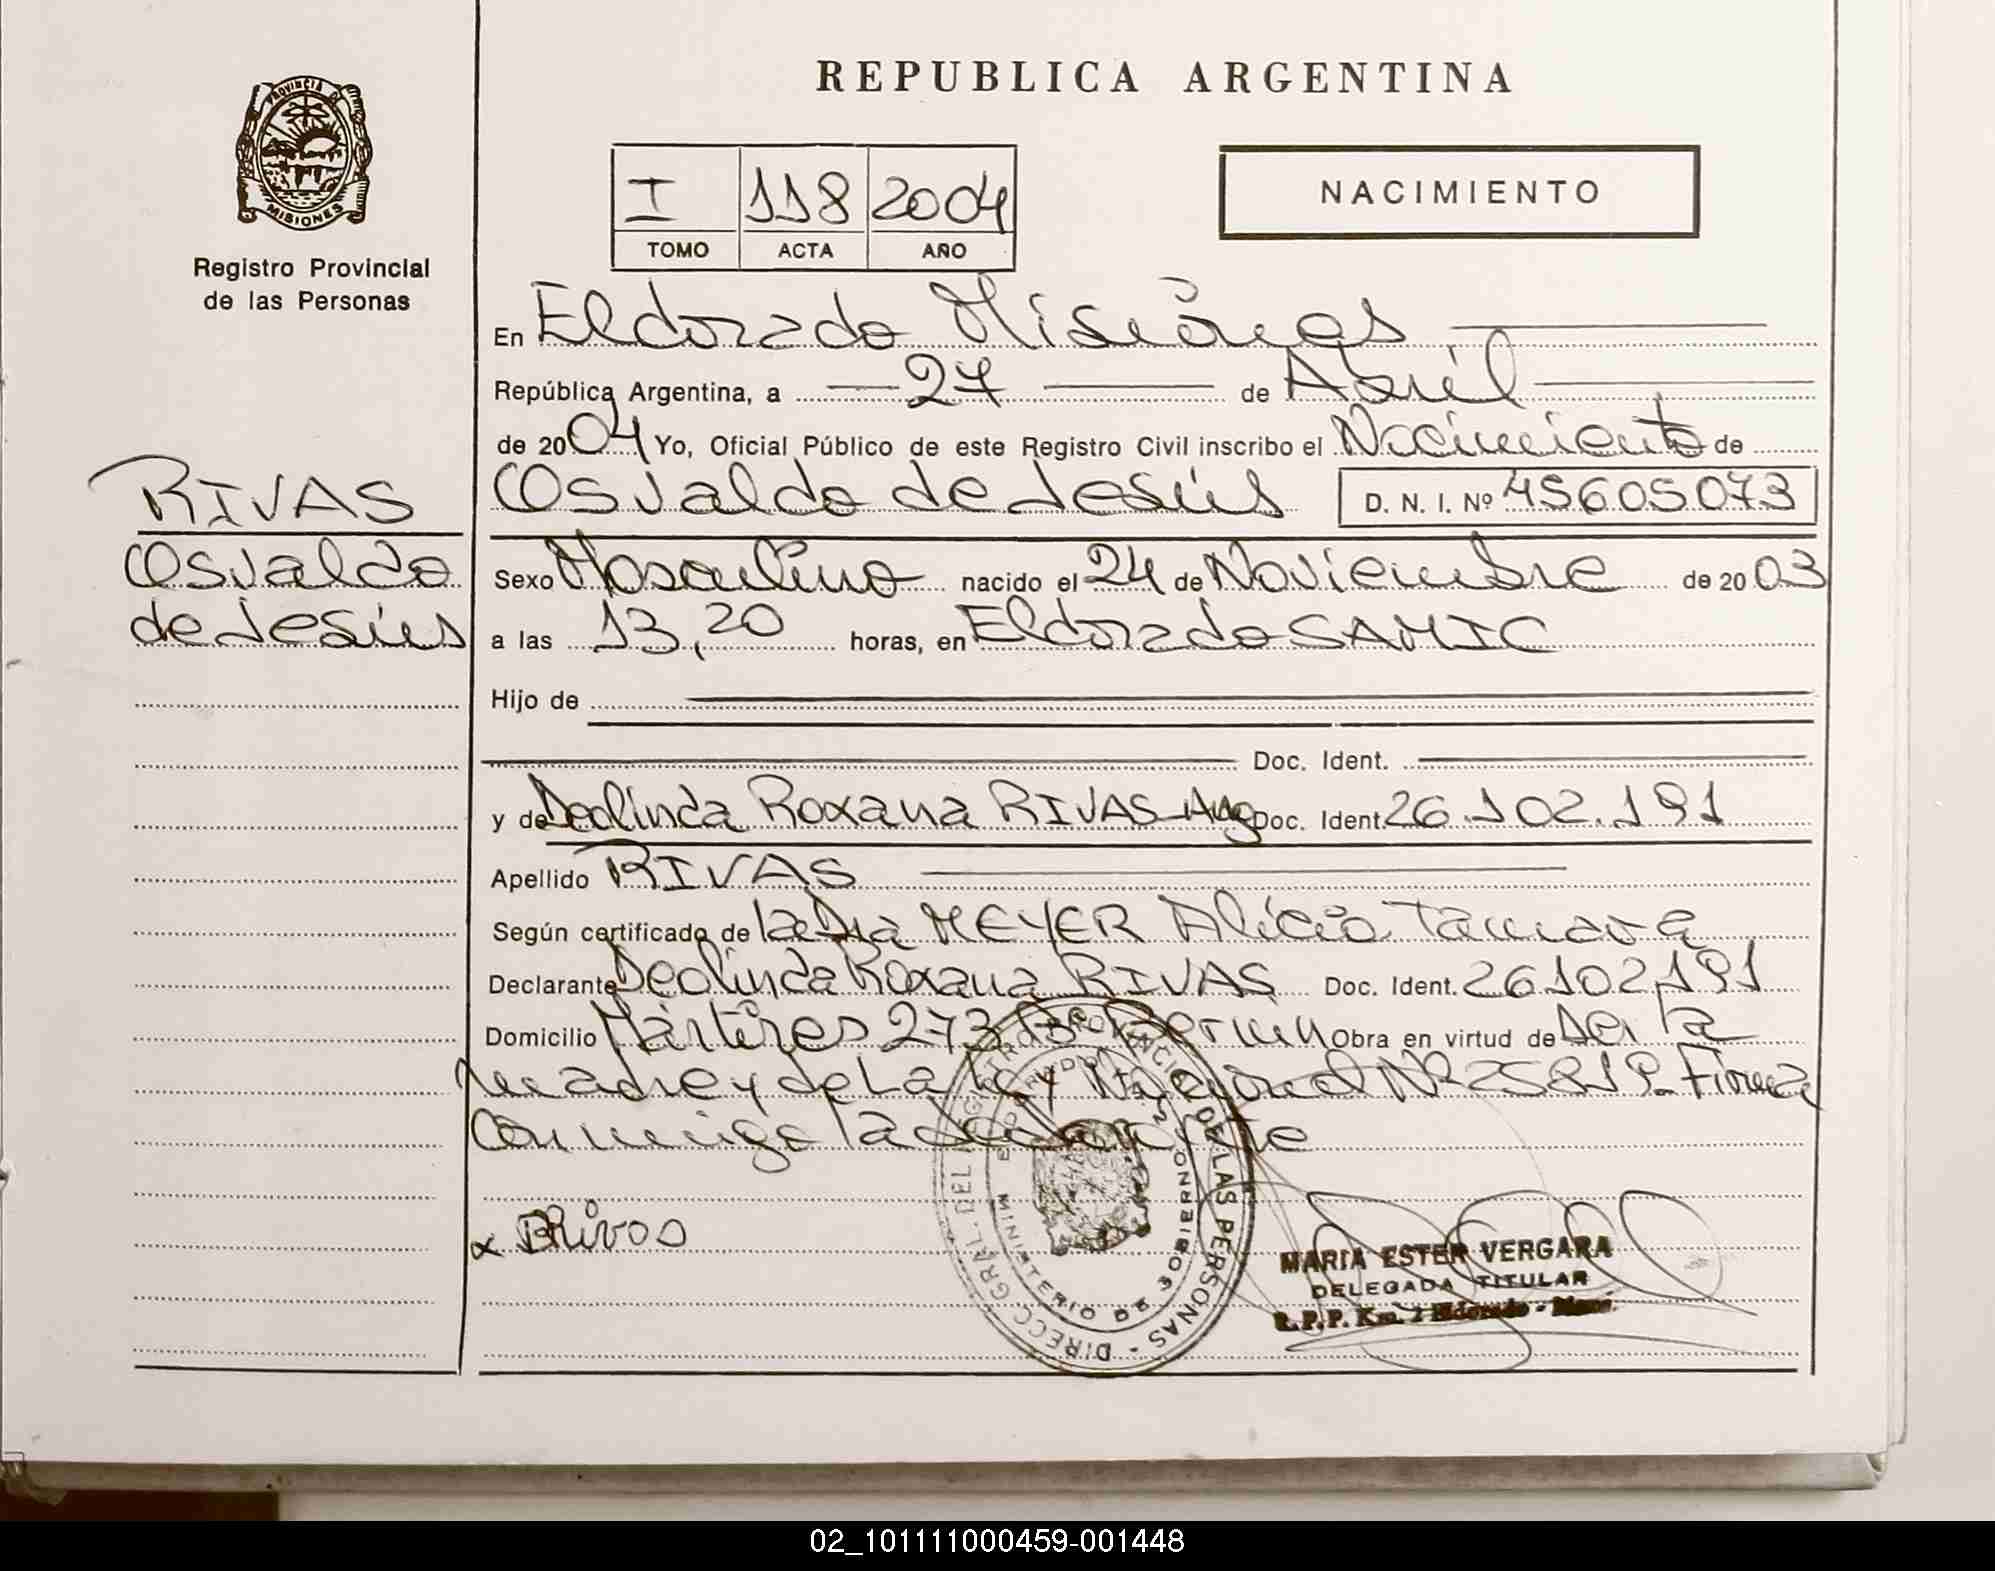 PROVINCIA DE
MISIONES
Registro Provincial
de las Personas
RIVAS
Osvaldo
de Jesús
REPUBLICA ARGENTINA
I 118 2004
TOMO ACTA AÑO
NACIMIENTO
En Eldorado Misiones
República Argentina, a 27 de Abril
de 2004 Yo, Oficial Público de este Registro Civil inscribo el Nacimiento de
Osvaldo de Jesús D. N. I. Nº 45605073
Sexo Masculino nacido el 24 de Noviembre de 2003
a las 13,20 horas, en Eldorado SAMIC
Hijo de
Doc. Ident.
y de Deolinda Roxana RIVAS Arg Doc. Ident. 26.102.191
Apellido RIVAS
Según certificado de la Dra MEYER Alicia Tamara
Declarante Deolinda Roxana RIVAS Doc. Ident. 26102191
Domicilio Mártires 273 Bº Obra en virtud de Ser la
madre y de La Ley Nacional Nº 25819. Firma
Conmigo la declarante
x Rivas
DIRECC. GRAL. DEL REGISTRO PROVINCIAL DE LAS PERSONAS
MINISTERIO DE GOBIERNO
ELDORADO
MARIA ESTER VERGARA
DELEGADA TITULAR
R.P.P. Km. 2 Eldorado - Mnes.
02_101111000459-001448